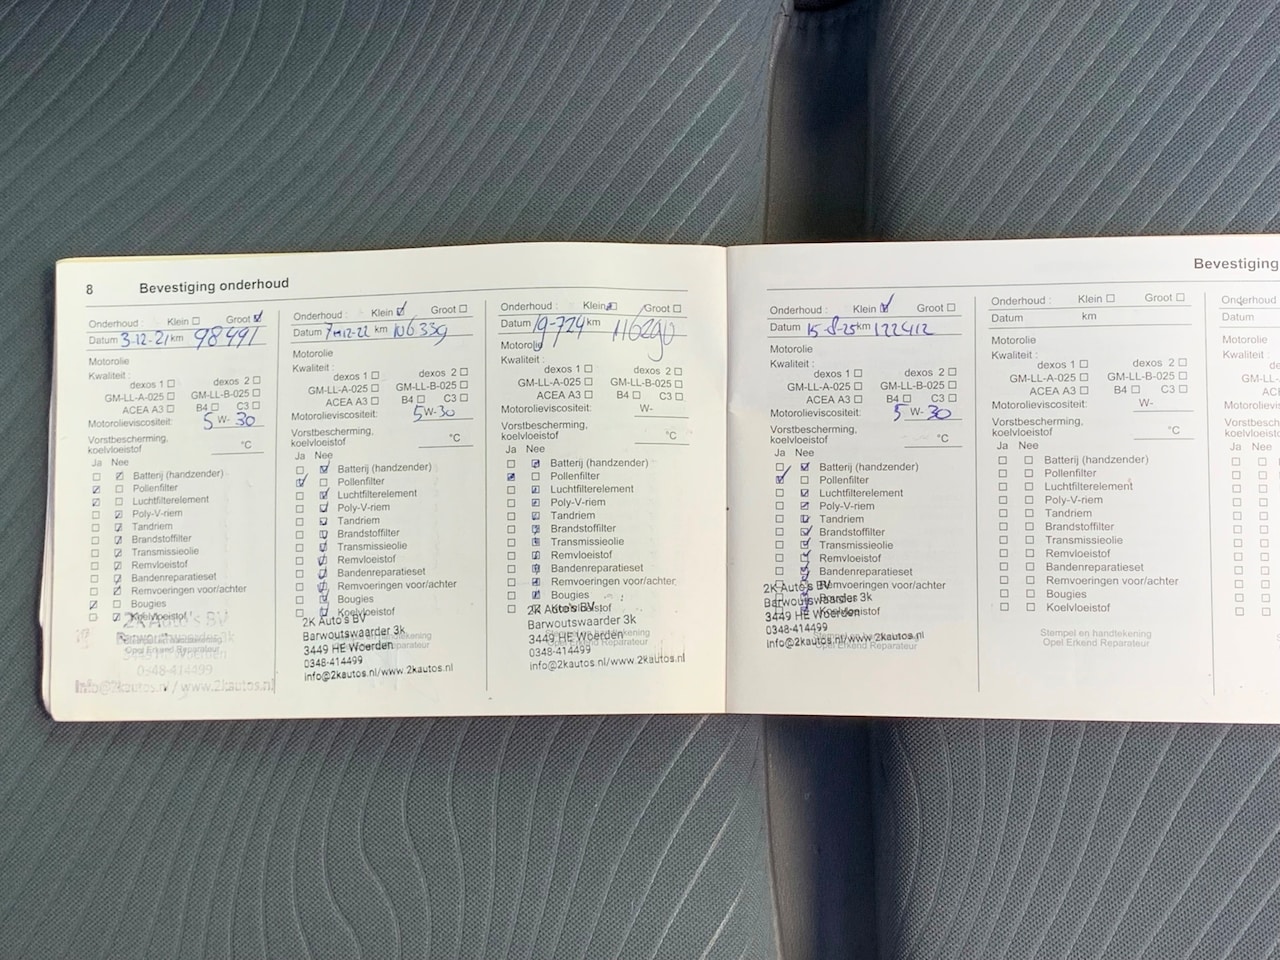 8 Bevestiging onderhoud
Onderhoud : Klein Groot
Datum 3-12-21 km 98491
Motorolie
Kwaliteit :
dexos 1 dexos 2
GM-LL-A-025 GM-LL-B-025
ACEA A3 B4 C3
Motorolieviscositeit: 5 W- 30
Vorstbescherming,
koelvloeistof °C
Ja Nee
Batterij (handzender)
Pollenfilter
Luchtfilterelement
Poly-V-riem
Tandriem
Brandstoffilter
Transmissieolie
Remvloeistof
Bandenreparatieset
Remvoeringen voor/achter
Bougies
Koelvloeistof
2K Auto's BV
Barwoutswaarder 3k
Stempel en handtekening
3449 HE Woerden
Opel Erkend Reparateur
0348-414499
info@2kautos.nl / www.2kautos.nl
Onderhoud : Klein Groot
Datum 7-12-22 km 106339
Motorolie
Kwaliteit :
dexos 1 dexos 2
GM-LL-A-025 GM-LL-B-025
ACEA A3 B4 C3
Motorolieviscositeit: 5 W- 30
Vorstbescherming,
koelvloeistof °C
Ja Nee
Batterij (handzender)
Pollenfilter
Luchtfilterelement
Poly-V-riem
Tandriem
Brandstoffilter
Transmissieolie
Remvloeistof
Bandenreparatieset
Remvoeringen voor/achter
Bougies
Koelvloeistof
2K Auto's BV
Barwoutswaarder 3k
3449 HE Woerden
Opel Erkend Reparateur
0348-414499
info@2kautos.nl/www.2kautos.nl
Onderhoud : Klein Groot
Datum 19-724 km 116290
Motorolie
Kwaliteit :
dexos 1 dexos 2
GM-LL-A-025 GM-LL-B-025
ACEA A3 B4 C3
Motorolieviscositeit: W-
Vorstbescherming,
koelvloeistof °C
Ja Nee
Batterij (handzender)
Pollenfilter
Luchtfilterelement
Poly-V-riem
Tandriem
Brandstoffilter
Transmissieolie
Remvloeistof
Bandenreparatieset
Remvoeringen voor/achter
Bougies
Koelvloeistof
2K Auto's BV
Barwoutswaarder 3k
3449 HE Woerden
Opel Erkend Reparateur
0348-414499
info@2kautos.nl/www.2kautos.nl
Bevestiging
Onderhoud : Klein Groot
Datum 15-8-25 km 122412
Motorolie
Kwaliteit :
dexos 1 dexos 2
GM-LL-A-025 GM-LL-B-025
ACEA A3 B4 C3
Motorolieviscositeit: 5 W- 30
Vorstbescherming,
koelvloeistof °C
Ja Nee
Batterij (handzender)
Pollenfilter
Luchtfilterelement
Poly-V-riem
Tandriem
Brandstoffilter
Transmissieolie
Remvloeistof
Bandenreparatieset
Remvoeringen voor/achter
Bougies
Koelvloeistof
2K Auto's BV
Barwoutswaarder 3k
3449 HE Woerden
0348-414499
Opel Erkend Reparateur
info@2kautos.nl/www.2kautos.nl
Onderhoud : Klein Groot
Datum km
Motorolie
Kwaliteit :
dexos 1 dexos 2
GM-LL-A-025 GM-LL-B-025
ACEA A3 B4 C3
Motorolieviscositeit: W-
Vorstbescherming,
koelvloeistof °C
Ja Nee
Batterij (handzender)
Pollenfilter
Luchtfilterelement
Poly-V-riem
Tandriem
Brandstoffilter
Transmissieolie
Remvloeistof
Bandenreparatieset
Remvoeringen voor/achter
Bougies
Koelvloeistof
Stempel en handtekening
Opel Erkend Reparateur
Onderhoud
Datum
Motorolie
Kwaliteit :
Ja Nee